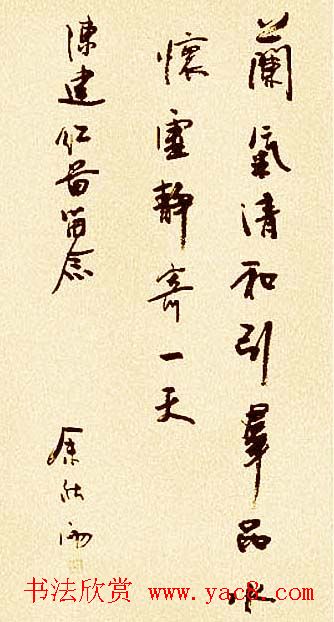 蘭氣清和引羣品水
懷虛靜寄一天
陳建留念
余秋雨
书法欣赏 www.yac8.com